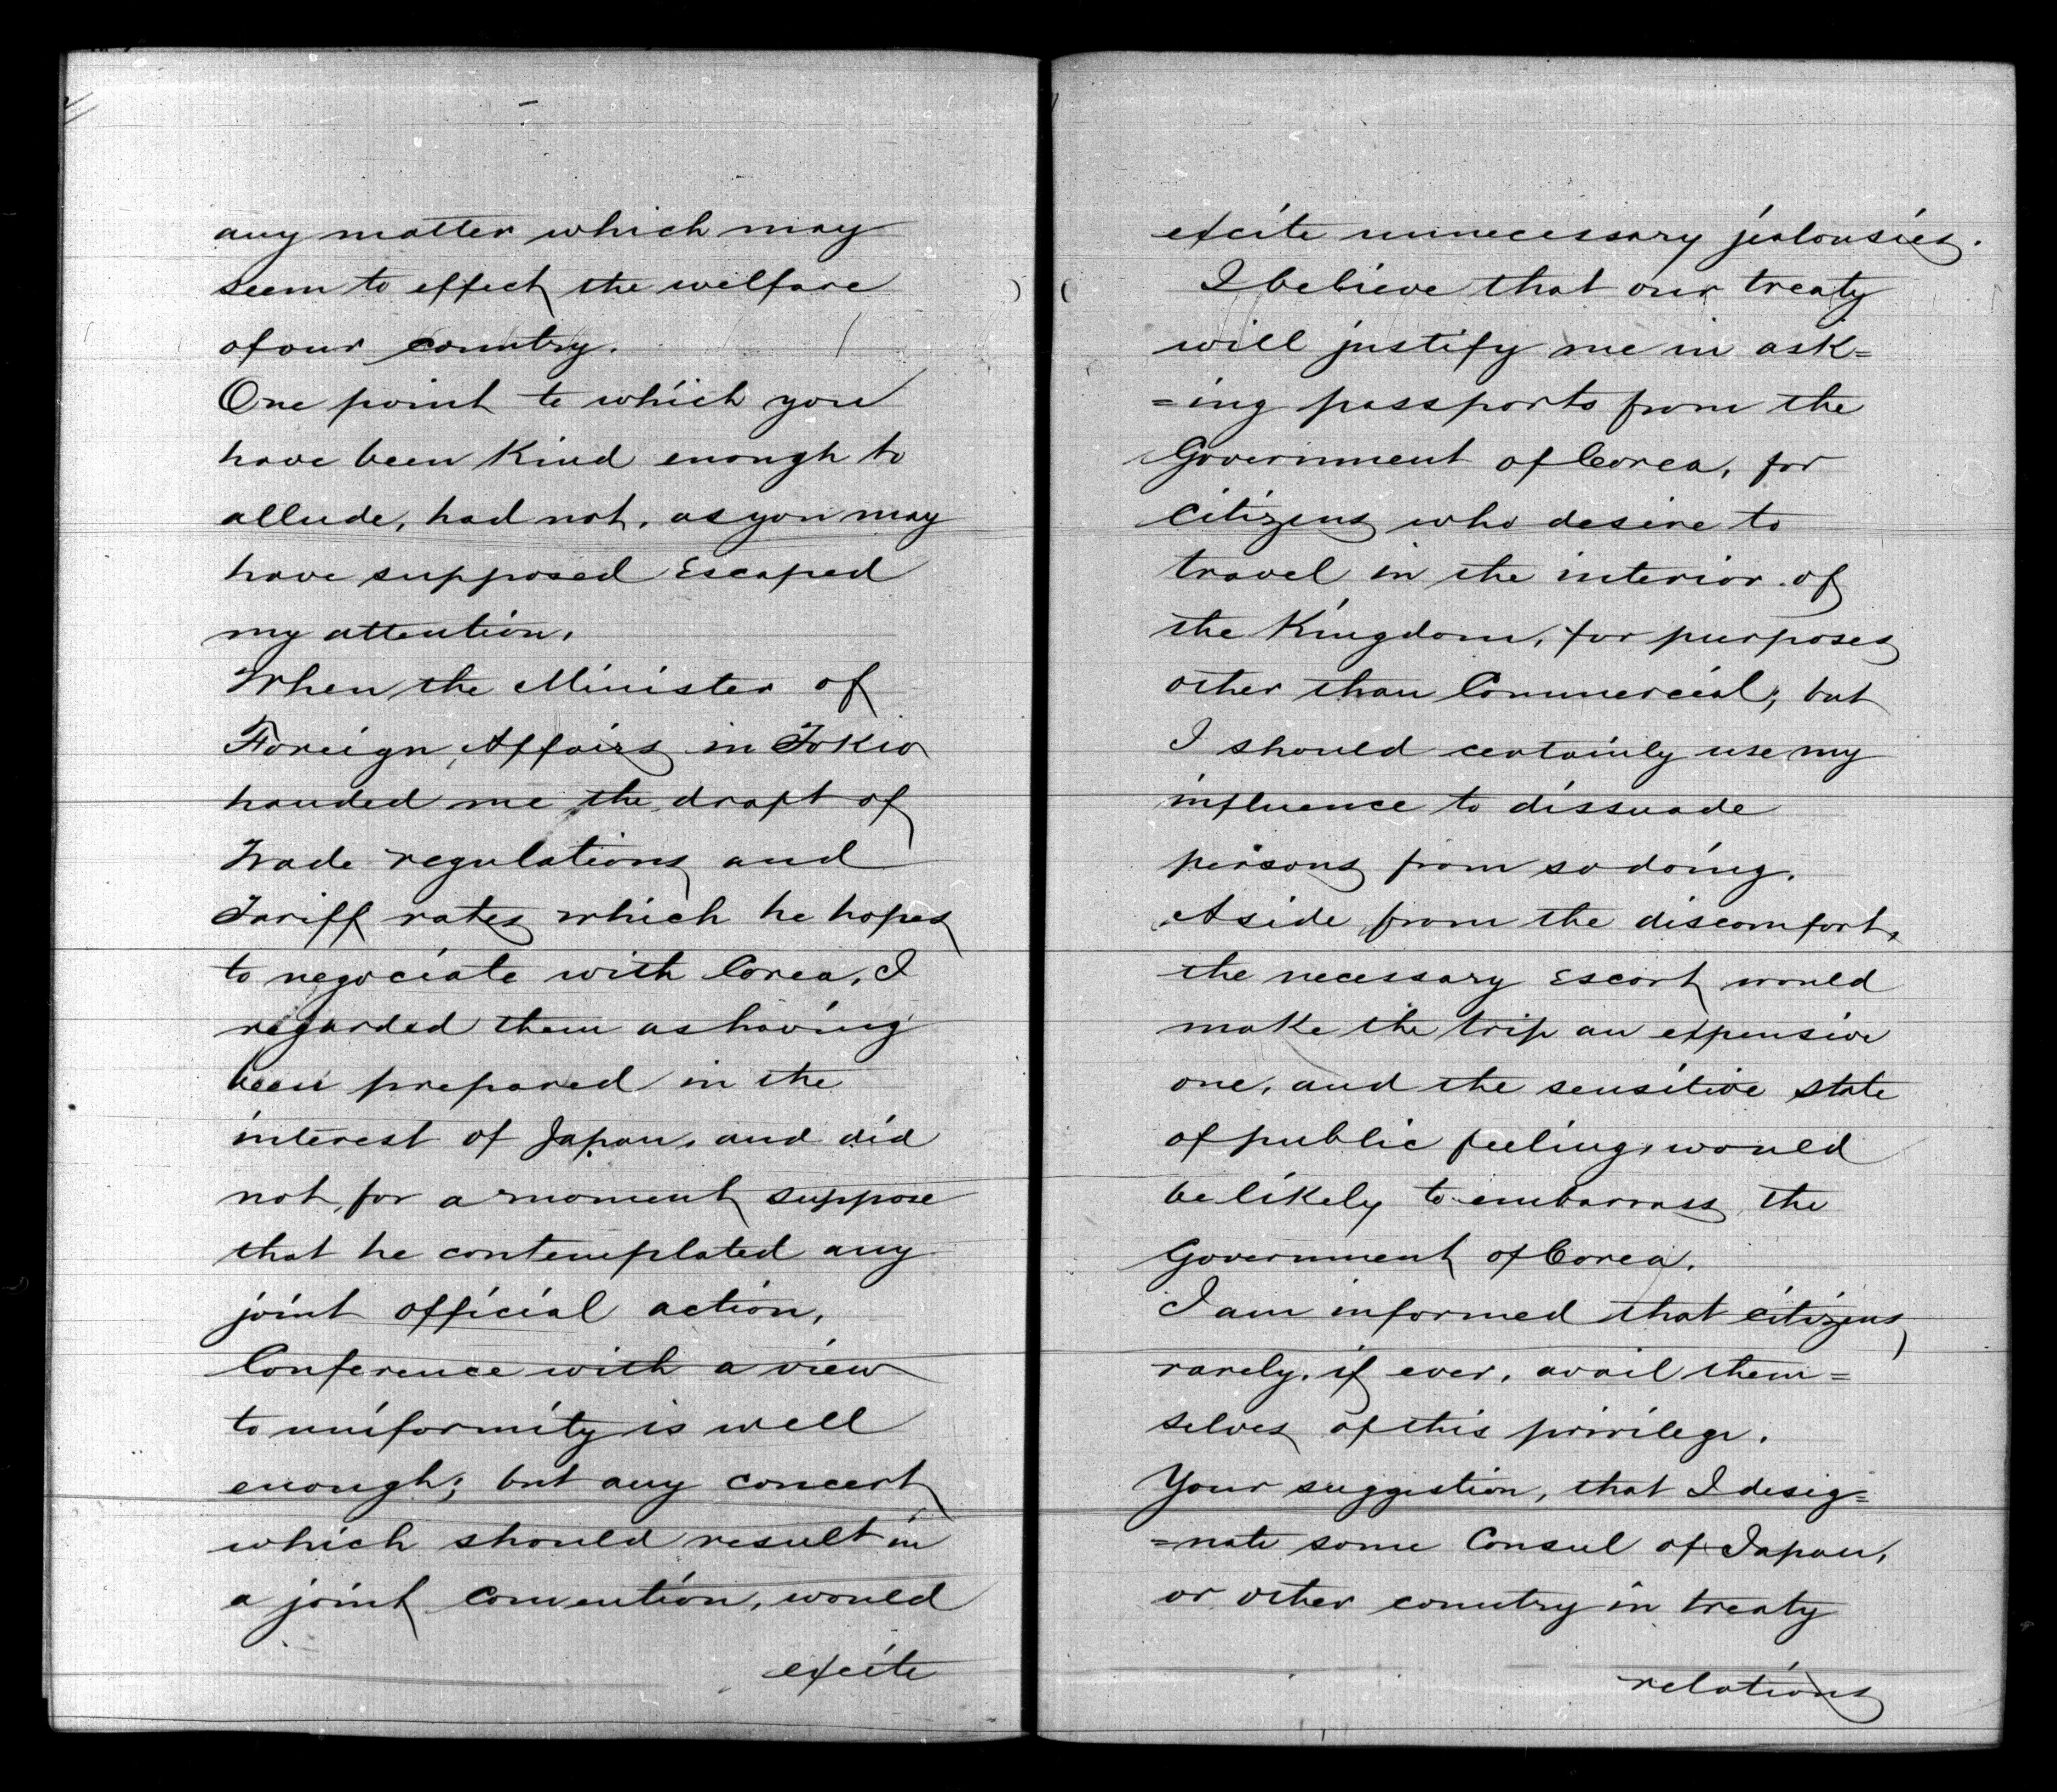 any matter which may
seem to effect the welfare
of our country.
One point to which you
have been kind enough to
allude, had not, as you may
have supposed escaped
my attention.
When the Minister of
Foreign Affairs in Tokio
handed me the draft of
Trade regulations and
Tariff rates which he hopes
to negociate with Corea, I
regarded them as having
been prepared in the
interest of Japan, and did
not, for a moment suppose
that he contemplated any
joint official action.
Conference with a view
to uniformity is well
enough; but any concert
which should result in
a joint convention, would
excite
excite unnecessary jealousies.
I believe that our treaty
will justify me in ask=
=ing passports from the
Government of Corea, for
citizens who desire to
travel in the interior of
the Kingdom, for purposes
other than Commercial; but
I should certainly use my
influence to dissuade
persons from so doing.
Aside from the discomfort,
the necessary escort would
make the trip an expensive
one, and the sensitive state
of public feeling, would
be likely to embarrass the
Government of Corea.
I am informed that citizens
rarely, if ever, avail them=
selves of this privilege.
Your suggestion, that I desig=
=nate some Consul of Japan,
or other country in treaty
relations